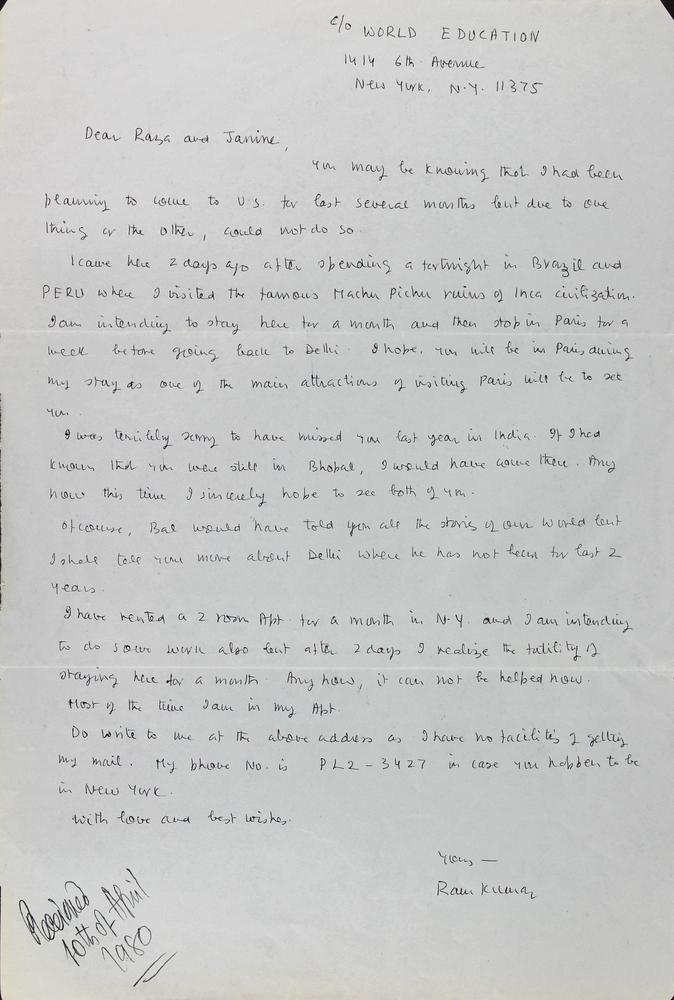 c/o WORLD EDUCATION
1414 6th Avenue
New York, N.Y. 11375
Dear Raza and Janine,
you may be knowing that I had been
planning to come to U.S. for last several months but due to one
thing or the other, could not do so.
I came here 2 days ago after spending a fortnight in Brazil and
PERU where I visited the famous Machu Pichu ruins of Inca civilization.
I am intending to stay here for a month and then stop in Paris for a
week before going back to Delhi. I hope, you will be in Paris during
my stay as one of the main attractions of visiting Paris will be to see
you.
I was terribly sorry to have missed you last year in India. If I had
known that you were still in Bhopal, I would have come there. Any
how this time I sincerely hope to see both of you.
Of course, Bal would have told you all the stories of our world but
I shall tell you more about Delhi where he has not been for last 2
years.
I have rented a 2 room Apt. for a month in N.Y. and I am intending
to do some work also but after 2 days I realize the futility of
staying here for a month. Any how, it can not be helped now.
Most of the time I am in my Apt.
Do write to me at the above address as I have no facilities of getting
my mail. My phone No. is PL2-3427 in case you happen to be
in New York.
With love and best wishes.
Yours —
Ram Kumar
Received
10th of April
1980